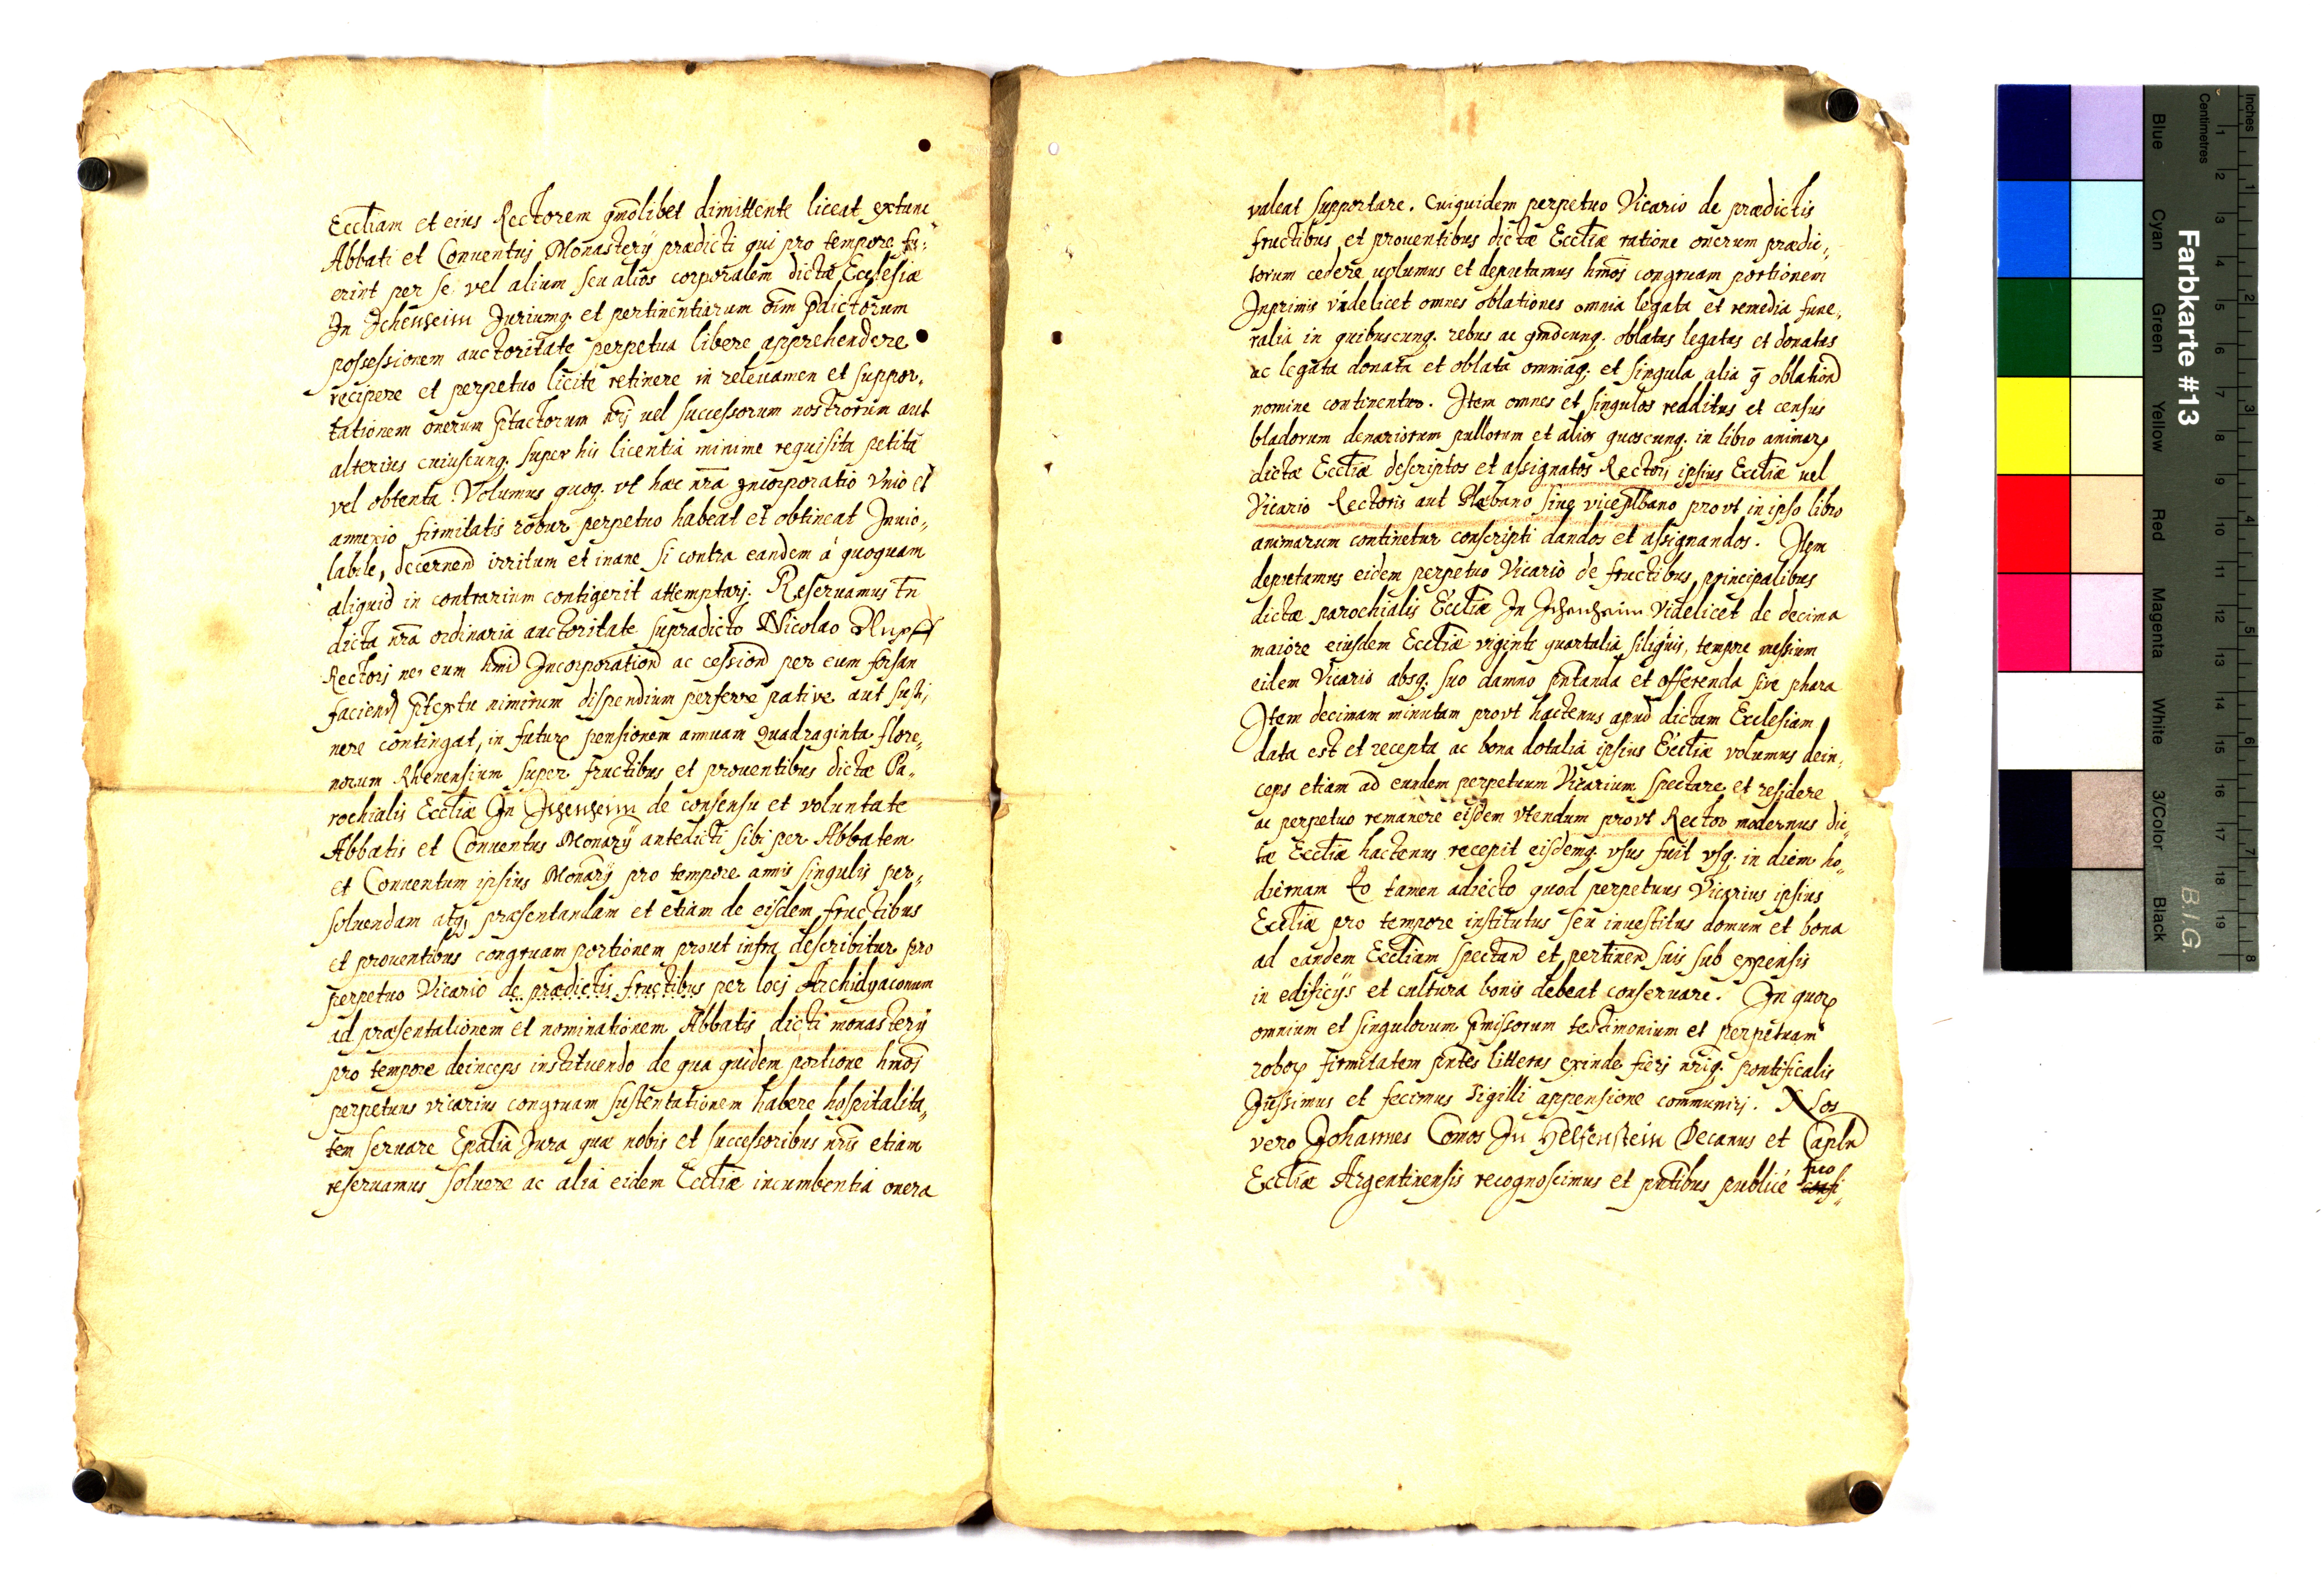 Eccliam et eius Rectorem qmōlibet dimittente liceat extunc
Abbati et Conuentuj Monasterÿ prædicti qui pro tempore fu:
erint per se vel alium seu alios corporalem dictæ Ecclesiæ
In Ichenheim Juriumq. et pertinentiarum oīm pdictorum
possessionem auctoritate perpetua libere apprehendere
recipere et perpetuo licite retinere in releuamen et suppor„
tationem onerum ptactorum nrj uel successorum nostrorum aut
alterius cuiuscunq. super his licentia minime requisita petita
vel obtenta. Volumus quoq. vt hæc nra Incorporatio Vnio et
annexio firmitatis robur perpetuo habeat et obtineat Inuio„
labile, decernend irritum et inane si contra eandem á quoquam
aliquid in contrarium contigerit attemptarj. Reseruamus tn
dicta nra ordinaria auctoritate supradicto Nicolao Rupff
Rectorj ne, eum hmōi Incorporationd ac cessiond per eum forsan
faciend ptextu nimirum dispendium perferre pative aut susti„
nere contingat, in futurx pensionem annuam Quadraginta flore„
norum Rhenensium super fructibus et prouentibus dictæ Pa„
rochialis Eccliæ In Ichenheim de consensu et voluntate
Abbatis et Conuentus Monarÿ antedicti sibi per Abbatem
et Conuentum ipsius Monarÿ pro tempore annis singulis per„
soluendam atq. præsentandam et etiam de eisdem fructibus
et prouentibus congruam portionem prout infra describitur pro
perpetuo Vicario de prædictis fructibus per locj Archidyaconum
ad præsentationem et nominationem Abbatis dicti monasterÿ
pro tempore deinceps instituendo de qua quidem portione hmōi
perpetuus vicarius congruam sustentationem habere hospitalita„
tem seruare Epalia Jura quæ nobis et successoribus nrīs etiam
reseruamus soluere ac alia eidem Eccliæ incumbentia onera
valeat supportare. Cuiquidem perpetuo Vicario de prædictis
fructibus et prouentibus dictæ Eccliæ ratione onerum prædic„
torum cedere uolumus et deputamus hmōi congruam portionem
Inprimis videlicet omnes oblationes omnia legata et remedia fune„
ralia in quibuscunq. rebus ac qmōcunq. oblatas legatas et donatas
ac legata donata et oblata omniaq. et singula alia q oblationd
nomine continentur. Item omnes et singulos redditus et census
bladorum denariorum pullorum et alios quoscunq. in libro animarx
dictæ Eccliæ descriptos et assignatos Rectorj ipsius Eccliæ uel
Vicario Rectoris aut Plebano siue viceplbano provt in ipso libro
animarum continetur conscripti dandos et assignandos. Item
deputamus eidem perpetuo Vicario de fructibus principalibus
dictæ parochialis Eccliæ In Ichenheim Videlicet de decima
maiore eiusdem Eccliæ viginti quartalia siliginis, tempore messium
eidem Vicario absq. suo damno pntanda et offerenda sive phara
Item decimam minutam provt hactenus apud dictam Ecclesiam
data est et recepta ac bona dotalia ipsius Eccliæ volumus dein„
ceps etiam ad eundem perpetuum Vicarium spectare et residere
ac perpetuo remanere eisdem vtendum provt Rector modernus dic„
tæ Eccliæ hactenus recepit eisdemq. vsus fuit vsq. in diem ho„
diernam Eo tamen adiecto quod perpetuus Vicarius ipsius
Eccliæ pro tempore institutus seu inuestitus domum et bona
ad eandem Eccliam spectand et pertinend suis sub expensis
in edificÿs et cultura bonis debeat conseruare. In quorx
omnium et singulorum pmissorum testimonium et perpetuam
roborx firmitatem pntes litteras exinde fierj nrīq. pontificalis
Jussimus et fecimus sigilli appensione communirj. Nos
vero Johannes Comos In Helfenstein Decanus et Capld
Eccliæ Argentinensis recognoscimus et pntibus publicé pro
confi„